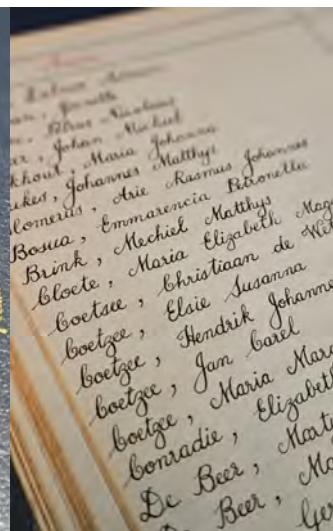 Johan Michiel
Maria Johanna
Johannes Matthys
Arie Rasmus Johannes
Bosua, Emmarencia Petronella
Brink, Mechiel Matthys
Cloete, Maria Elizabeth
Coetsee, Christiaan de
Coetzee, Elsie Susanna
Coetzee, Hendrik Johannes
Coetzee, Jan Carel
Coetzee, Maria
Conradie, Elizabeth
De Beer,
De Beer,